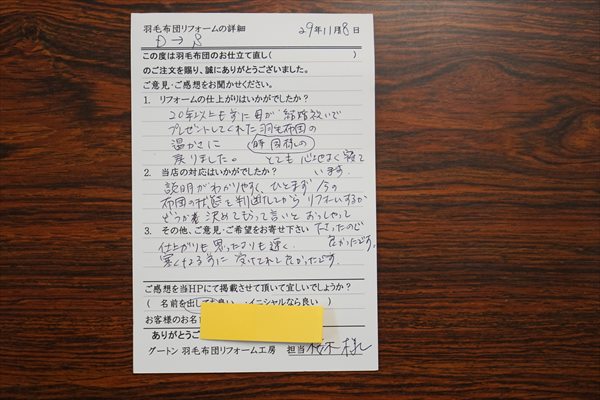 羽毛布団リフォームの詳細 29年11月8日
D→S
この度は羽毛布団のお仕立て直し( )
のご注文を賜り、誠にありがとうございました。
ご意見・ご感想をお聞かせください。
1. リフォームの仕上がりはいかがでしたか?
20年以上もまえに母が結婚祝いで
プレゼントしてくれた羽毛布団の
温かさに
戻りました。 とても心地よく寝て
2. 当店の対応はいかがでしたか? います。
説明がわかりやすく、ひとまず今の
布団の状態を判断してから リフォームするか
どうかを決めてもらって言いと おっしゃって
3. その他、ご意見・ご希望をお寄せ下さい 下さったので
仕上がりも思ったよりも速く、 良かったです。
寒くなる前に 受けとれて良かったです。
ご感想を当HPにて掲載させて頂いて宜しいでしょうか?
( 名前を出して ・イニシャルなら良い )
お客様のお名
ありがとうご
グートン 羽毛布団リフォーム工房 担当 様